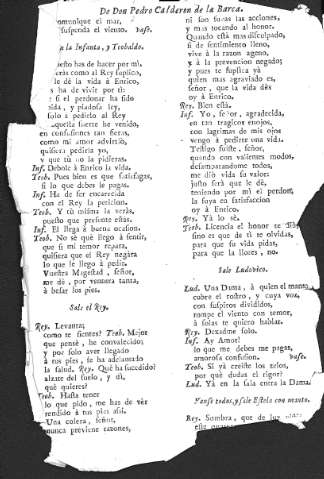 De Don Pedro Calderon de la Barca.
comunique el mar,
suspenda el viento. vase.
la Infanta, y Teobaldo.
esto has de hacer por mi,
como al Rey suplico,
le dé la vida à Enrico,
has de vivir por ti:
si el perdonar ha sido
vida, y piadosa ley,
solo à pedirlo al Rey
suerte he venido,
en confusiones tan fieras,
como mi amor advirtiò,
quisiera pedirla yo,
y que tù no la pidieras.
Inf. Debole à Enrico la vida.
Teob. Pues bien es que satisfagas,
si lo que debes le pagas.
Inf. Ha de ser encarecida
con el Rey la peticion.
Teob. Y tù misma la veràs,
puesto que presente estàs.
Inf. El llega à buena ocasion.
Teob. No sè què llego à sentir,
que si mi temor repara,
quisiera que el Rey negàra
lo que le llego à pedir.
Vuestra Magestad, señor,
me dè, por ventura tanta,
à besar los pies.
Sale el Rey.
Rey. Levanta;
como te sientes? Teob. Mejor
que pensè, he convalecido;
y por solo aver llegado
à tus pies, se ha adelantado
la salud. Rey. Què ha sucedido?
alzate del suelo, y dì,
què quieres?
Teob. Hasta tener
lo que pido, me has de vèr
rendido à tus pies assi.
Una colera, señor,
nunca previene razones,
ni son suyas las acciones,
y mas tocando al honor.
Quando està mas disculpado,
si de sentimiento lleno,
vive à la razon ageno,
y à la prevencion negado;
y pues te suplica yà
quien mas agraviado es,
señor, que la vida dès
oy à Enrico.
Rey. Bien està.
Inf. Yo, señor, agradecida,
en tan tragicos enojos,
con lagrimas de mis ojos
vengo à pedirte una vida.
Testigo fuiste, señor,
quando con valientes modos,
desamparandome todos,
me diò vida su valor:
justo serà que le dè,
teniendo por mi el perdon,
la suya en satisfaccion
oy à Enrico.
Rey. Yà lo sè.
Teob. Licencia el honor te
sino es que de ti te olvidas,
para que su vida pidas,
y para que la llores, no.
Sale Ludovico.
Lud. Una Dama, à quien el manto
cubre el rostro, y cuya voz,
con suspiros divididos,
rompe el viento con temor,
à solas te quiere hablar.
Rey. Dexadme solo.
Inf. Ay Amor!
lo que me debes me pagas,
amorosa confusion. vase.
Teob. Si yà creiste los zelos,
por què dudas el rigor?
Lud. Yà en la sala entra la Dama.
Vanse todos, y sale Estela con manto.
Rey. Sombra, que de luz